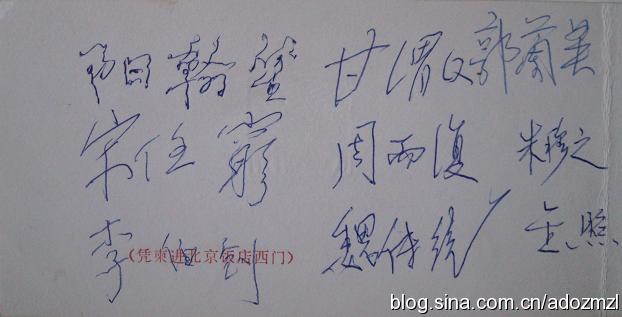 阳翰笙 甘渭汉 郭兰英
宋任穷 周而復 朱穆之
李伯钊 魏传统 照
（凭柬进北京饭店西门）
blog.sina.com.cn/adozmzl